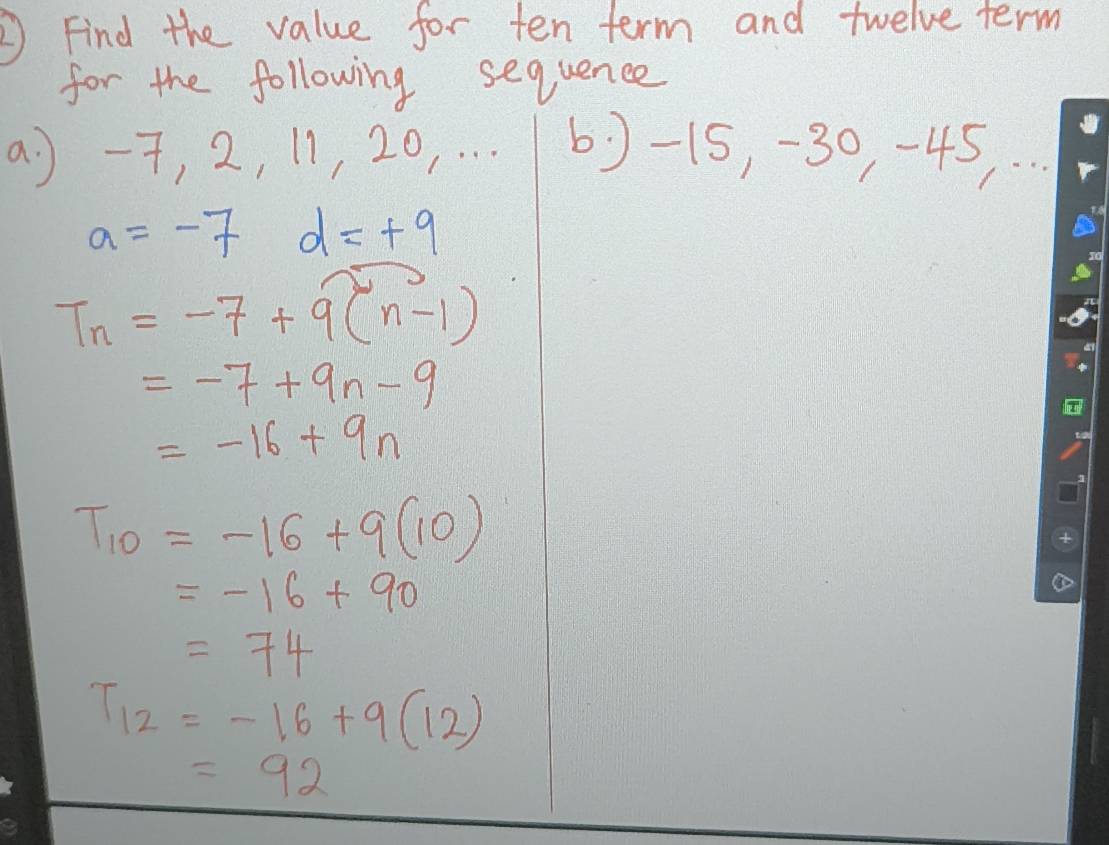 2) Find the value for ten term and twelve term
for the following sequence
a.) -7, 2, 11, 20, ...
a = -7 d = +9
Tn = -7 + 9(n-1)
= -7 + 9n - 9
= -16 + 9n
T10 = -16 + 9(10)
= -16 + 90
= 74
T12 = -16 + 9(12)
= 92
b.) -15, -30, -45, ...